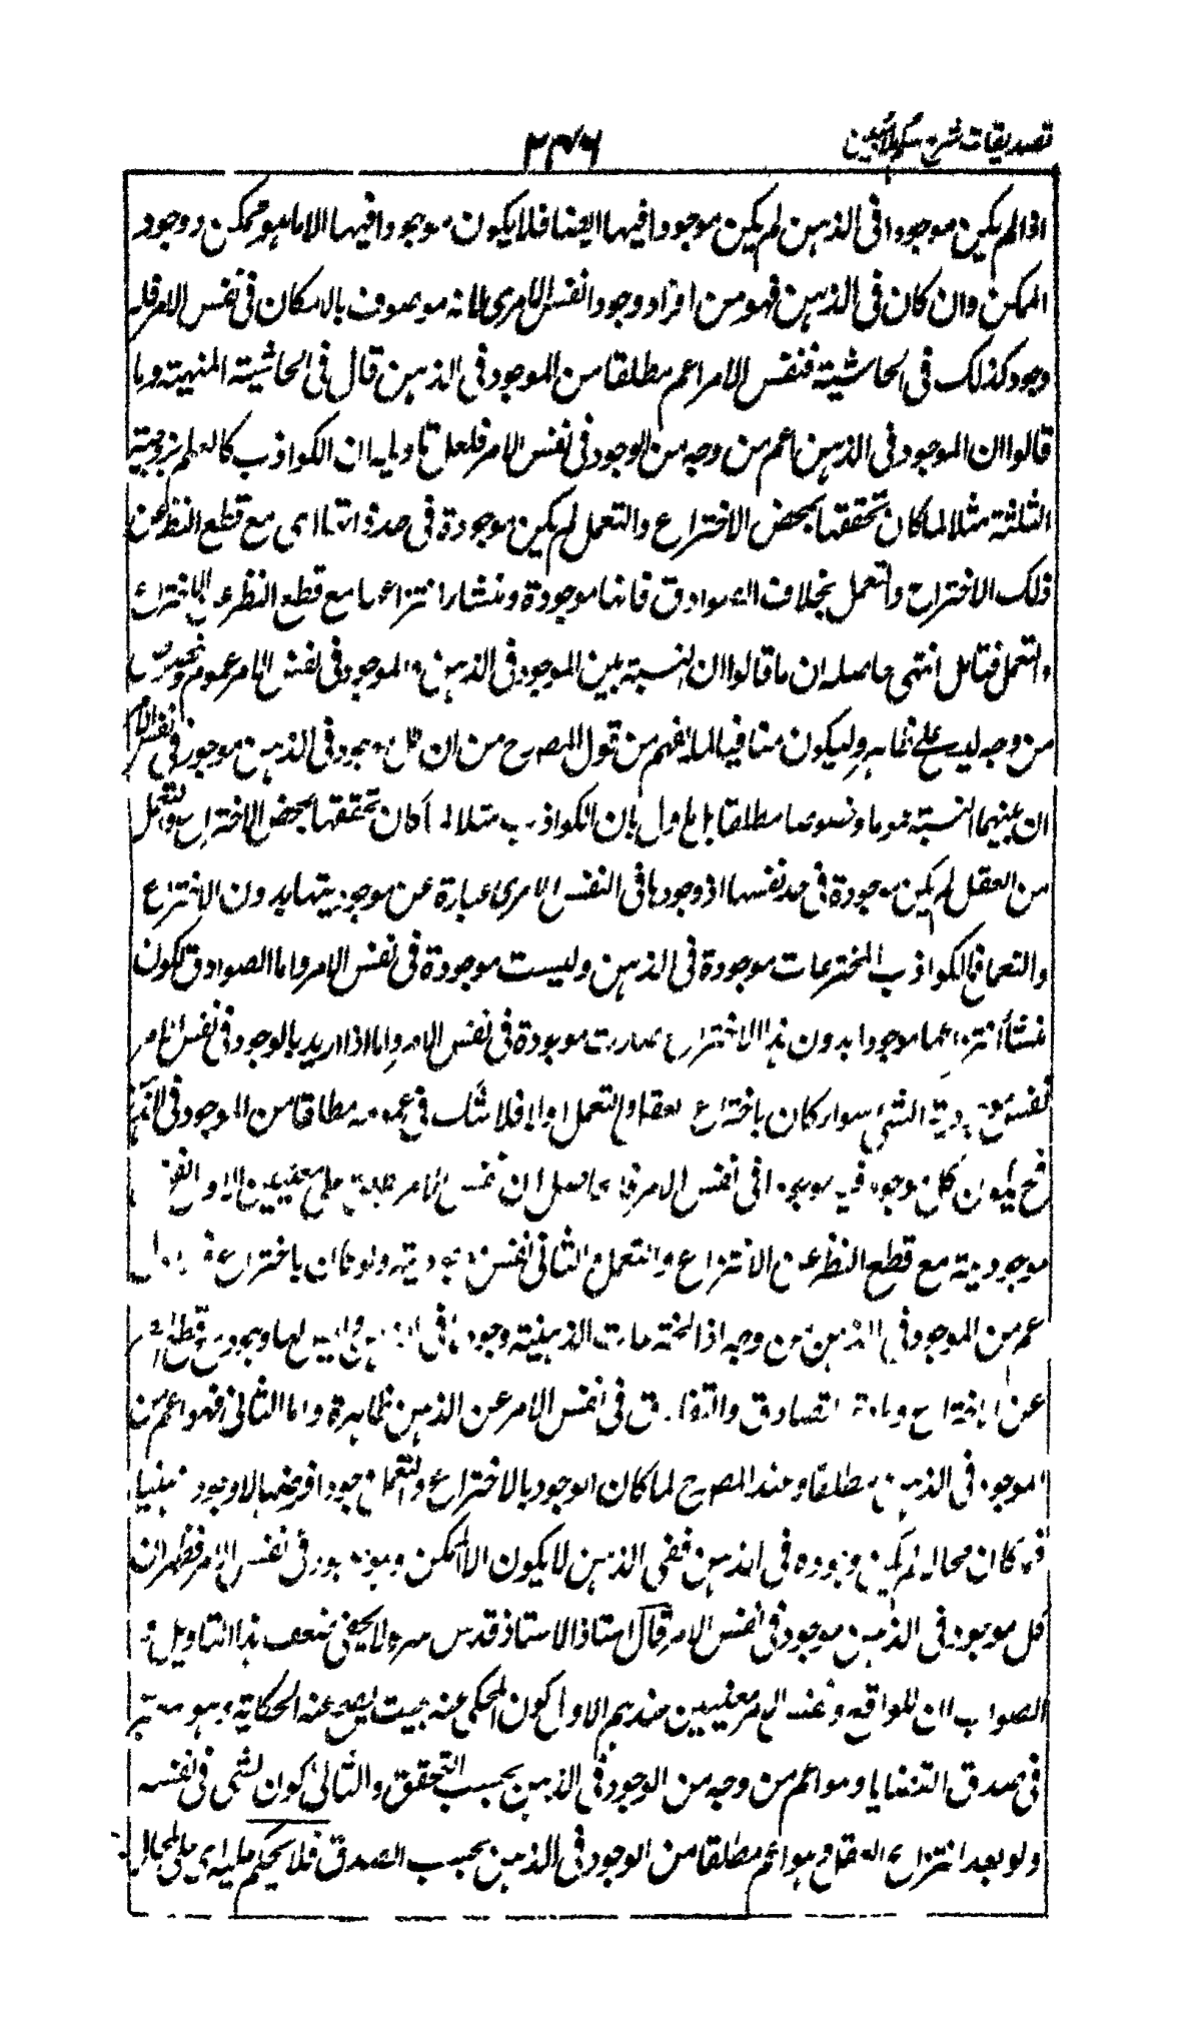 تصديقات شرح سلم ملا مبين
٣٣٦
اذا لم يكن موجودا فى الذهن لم يكن موجودا فيها ايضا فلا يكون موجودا فيها الا ما هو ممكن ووجود
الممكن وان كان فى الذهن فهو من افراد وجود النفس الامرى لما انه موصوف بالامكان فى نفس الامر فله
وجود كذلك فى الحاشية فنفس الامر اعم مطلقا من الموجود فى الذهن قال فى الحاشية المنهية وما
قالوا ان الموجود فى الذهن اعم من وجه من الوجود فى نفس الامر فلعل تاويله ان الكواذب كالعلم بزوجية
الثلثة مثلا لما كان تحققها بمحض الاختراع والتعمل لم يكن موجودة فى حد ذاتها اى مع قطع النظر عن
ذلك الاختراع والتعمل بخلاف الصوادق فانها موجودة ومنشأ انتزاعها مع قطع النظر عن الاختراع
والتعمل فتامل انتهى حاصله ان ما قالوا ان النسبة بين الموجود فى الذهن والموجود فى نفس الامر عموم وخصوص
من وجه ليس على ظاهره وليكون منافيا لما يفهم من قول المصرح من ان كل موجود فى الذهن موجود فى نفس الامر
ان بينهما النسبة عموما وخصوصا مطلقا بل ماول بان الكواذب مثلا لما كان تحققها بمحض الاختراع والتعمل
من العقل لم يكن موجودة فى حد نفسها اذ وجودها فى النفس الامرى عبارة عن موجوديتها بدون الاختراع
والتعمل فالكواذب المخترعات موجودة فى الذهن وليست موجودة فى نفس الامر واما الصوادق فلكون
منشأ انتزاعها موجودا بدون هذا الاختراع صارت موجودة فى نفس الامر واما اذا اريد بالوجود فى نفس الامر
نفس موجودية الشئ سواء كان باختراع العقل والتعمل او لا فلا شك فى عمومه مطلقا من الموجود فى الذهن
فح يكون كل موجود فيه موجودا فى نفس الامر فالحاصل ان نفس الامر على معنيين الاول
موجوديته مع قطع النظر عن الانتزاع والتعمل والثانى نفس موجوديته ولو كان باختراع
عم من الموجود فى الذهن من وجه اذ المخترعات الذهنية وجودها فى الذهن وليس لها وجود مع قطع النظر
عن الاختراع ومادة التصادق والتفارق فى نفس الامر عن الذهن ظاهرة واما الثانى فهو اعم من
الموجود فى الذهن مطلقا وعند المصرح لما كان الوجود بالاختراع والتعمل وجودا فرضيا لا وجود ذهنيا
فما كان محالا لم يكن وجوده فى الذهن ففى الذهن لا يكون الا الممكن وهو موجود فى نفس الامر فظهر ان
كل موجود فى الذهن موجود فى نفس الامر قال استاذ الاستاذ قدس سره لا يخفى ضعف هذا التاويل
الصواب ان للواقع ونفس الامر معنيين عندهم الاول كون المحكى عنه بحيث يصح عنه الحكاية وهو معتبر
فى صدق القضايا وهو اعم من وجه من الوجود فى الذهن بحسب التحقق والثانى كون الشئ فى نفسه
ولو بعد انتزاع العقل وهو اعم مطلقا من الوجود فى الذهن بحسب الصدق فلا يحكم عليه اى على المحال